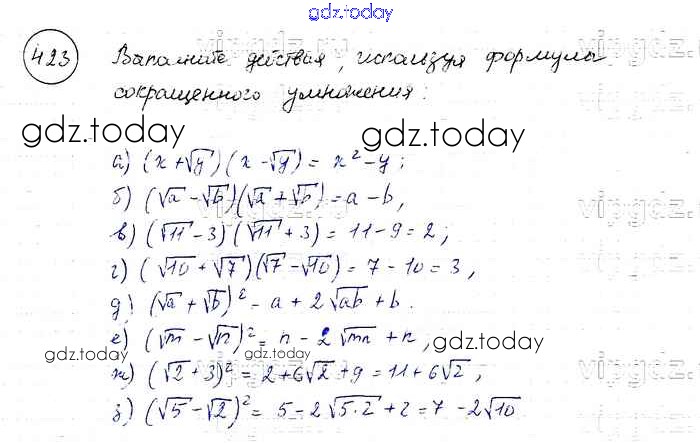 gdz.today
423 Выполните действия, используя формулы
сокращенного умножения:
gdz.today
gdz.today
а) (x + √y)(x - √y) = x² - y;
б) (√a - √b)(√a + √b) = a - b,
в) (√11 - 3)(√11 + 3) = 11 - 9 = 2;
г) (√10 + √7)(√7 - √10) = 7 - 10 = 3,
д) (√a + √b)² = a + 2√ab + b.
е) (√m - √n)² = n - 2√mn + n,
gdz.today
gdz.today
ж) (√2 + 3)² = 2 + 6√2 + 9 = 11 + 6√2,
з) (√5 - √2)² = 5 - 2√5·2 + 2 = 7 - 2√10.
gdz.today